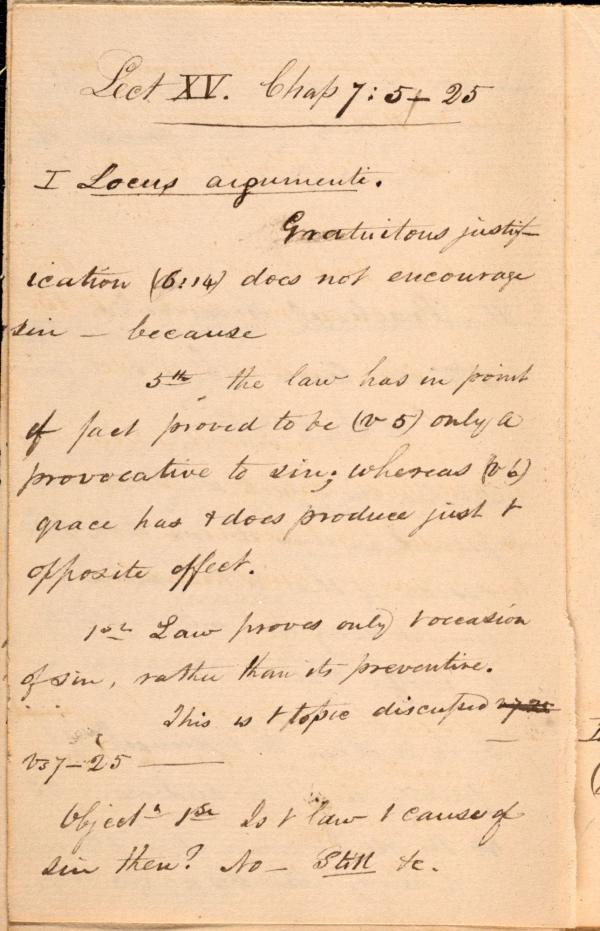 Lect XV. Chap 7:5 - 25
I Locus argumenti.
Gratuitous justif-
ication (6:14) does not encourage
sin - because
5th the law has in point
of fact proved to be (v 5) only a
provocative to sin; whereas (v 6)
grace has & does produce just t
opposite effect.
1st Law proves only t occasion
of sin, rather than its preventive.
This is t topic discussed v 7-25
vs 7-25
Objectn 1st Is t law t cause of
sin then? No - Still &c.